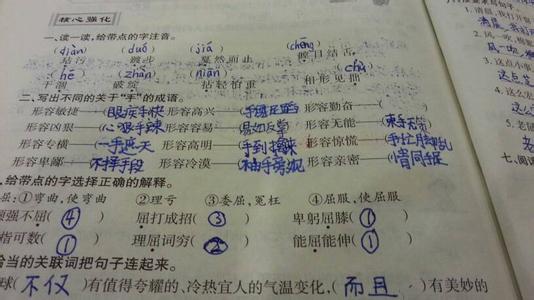 核心强化
一、读一读,给带点的字注音。
(diàn) (duó) (jiá) (chēng)
玷污 踱步 戛然而止 瞠目结舌
(hé) (zhān) (niān) (chù)
干涸 拈轻怕重 相形见拙
二、写出不同的关于“手”的成语。
形容敏捷——(眼疾手快) 形容高兴——(手舞足蹈) 形容勤奋——( )
形容凶狠——(心狠手辣) 形容容易——(易如反掌) 形容无能——(束手无策)
形容专横——(一手遮天) 形容高明——(手到擒来) 形容惊慌——(手忙脚乱)
形容卑鄙——(不择手段) 形容冷漠——(袖手旁观) 形容亲密——(情同手足)
、给带点的字选择正确的解释。
屈:①弯曲,使弯曲 ②理亏 ③委屈,冤枉 ④屈服,使屈服
顽强不屈(④) 屈打成招(③) 卑躬屈膝(①)
指可数(①) 理屈词穷(②) 能屈能伸(①)
恰当的关联词把句子连起来。
球(不仅)有值得夸耀的、冷热宜人的气温变化,(而且)有美妙的